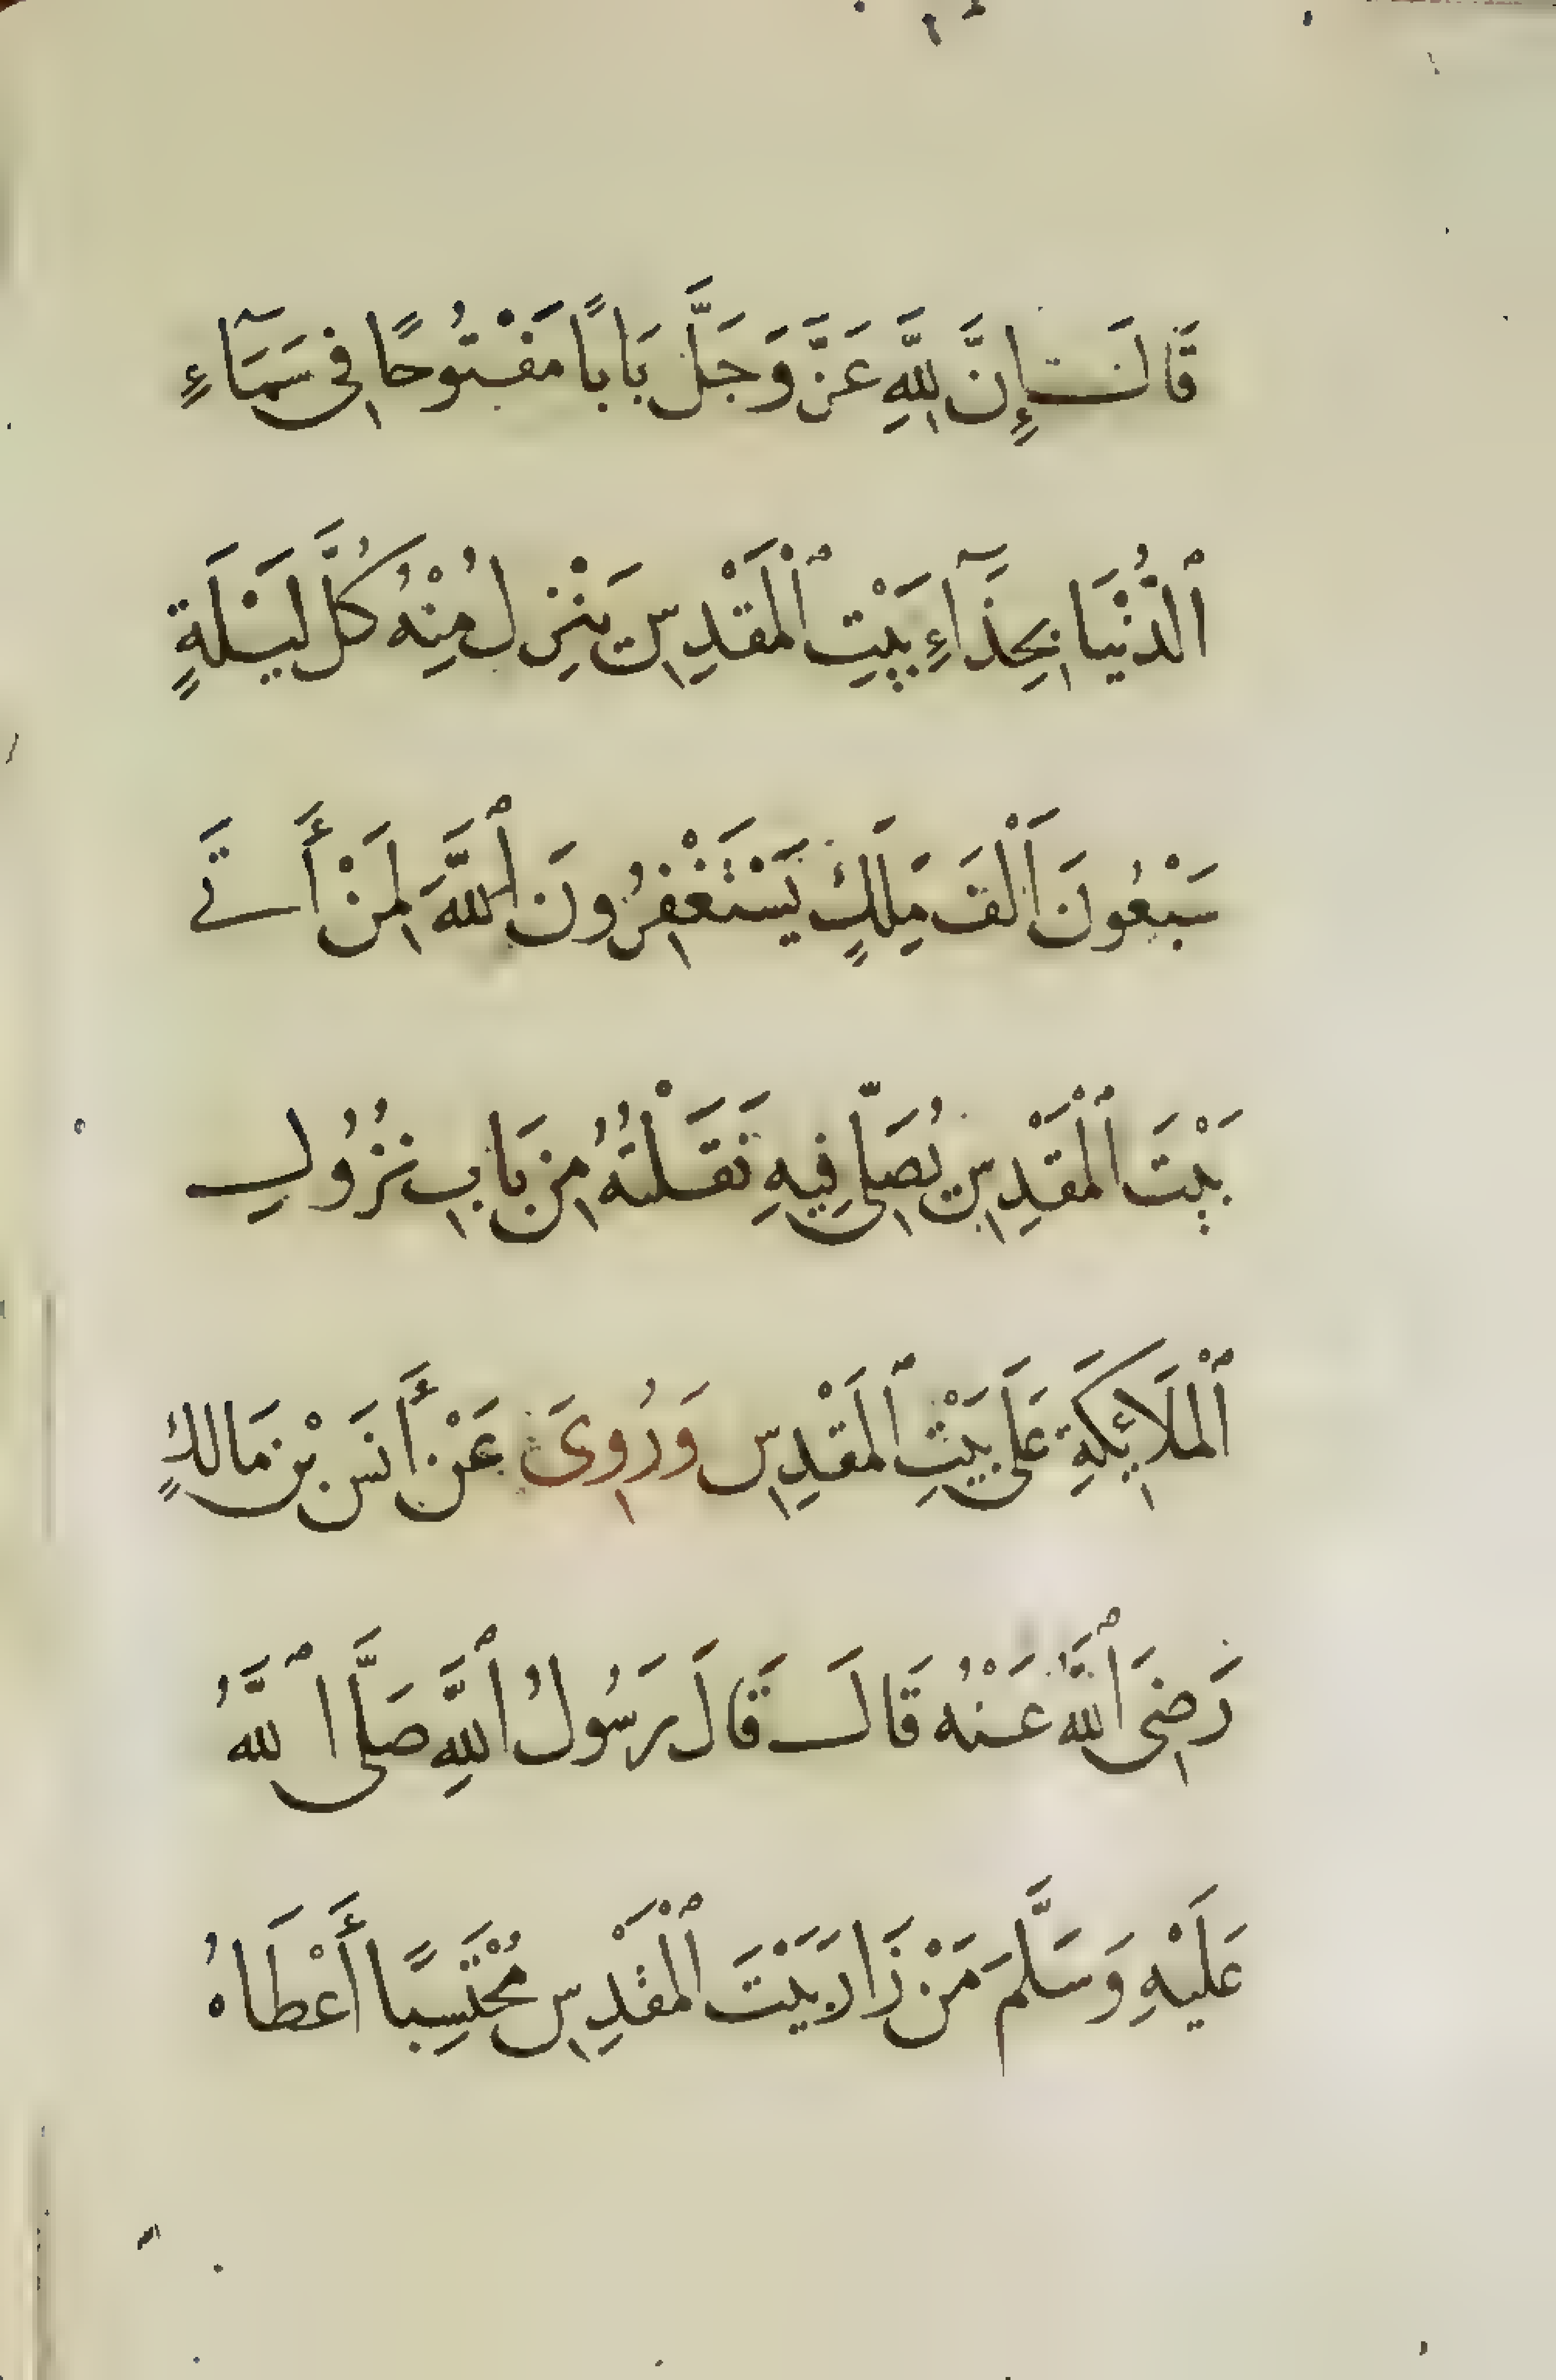 قَالَتْ إِنَّ لِلّٰهِ عَزَّ وَجَلَّ بَابًا مَفْتُوحًا فِى سَمَآءِ
ٱلدُّنْيَا بِحِذَآءِ بَيْتِ ٱلْمَقْدِسِ يَنْزِلُ مِنْهُ كُلَّ لَيْلَةٍ
سَبْعُونَ أَلْفَ مَلَكٍ يَسْتَغْفِرُونَ ٱللّٰهَ لِمَنْ أَتَى
بَيْتَ ٱلْمَقْدِسِ يُصَلِّى فِيهِ نَقَلْتُهُ مِنْ بَابِ نُزُولِ
ٱلْمَلَائِكَةِ عَلَى بَيْتِ ٱلْمَقْدِسِ وَرُوِىَ عَنْ أَنَسِ بْنِ مَالِكٍ
رَضِىَ ٱللّٰهُ عَنْهُ قَالَ قَالَ رَسُولُ ٱللّٰهِ صَلَّى ٱللّٰهُ
عَلَيْهِ وَسَلَّمَ مَنْ زَارَ بَيْتَ ٱلْمَقْدِسِ مُحْتَسِبًا أَعْطَاهُ